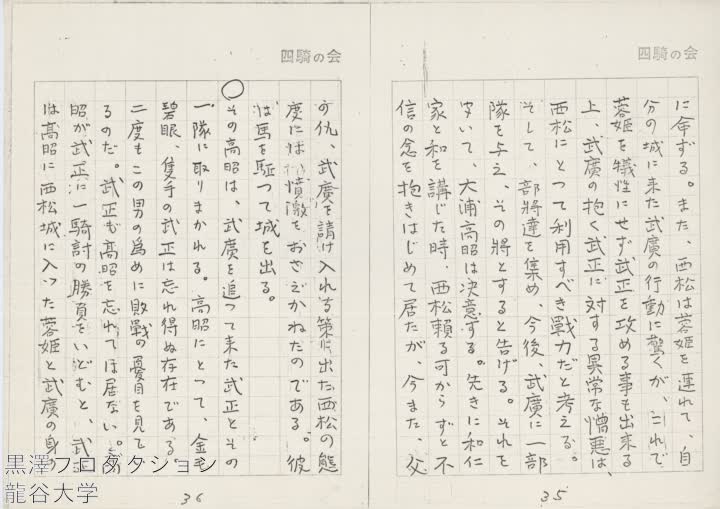 四騎の会
に命ずる。また、西松は蓉姫を連れて、自
分の城に来た武廣の行動に驚くが、これで
蓉姫を犠性にせず武正を攻める事も出来る
上、武廣の抱く武正に対する異常な憎悪は、
西松にとつて利用すべき戰力だと考える。
そして、部將達を集め、今後、武廣に一部
隊を与え、その將とすると告げる。それを
聞いて、大浦高昭は決意する。先きに和仁
家と和を講じた時、西松頼る可からずと不
信の念を抱きはじめて居たが、今また、父
35
四騎の会
の仇、武廣を請け入れる策に出た西松の態
度には憤激をおさえかねたのである。彼
は馬を駆つて城を出る。
○
その高昭は、武廣を追つて来た武正とその
一隊に取りまかれる。高昭にとつて、金毛
碧眼、隻手の武正は忘れ得ぬ存在である。
二度もこの男の為めに敗戰の憂目を見て
るのだ。武正も高昭を忘れては居ない。高
昭が武正に一騎討の勝負をいどむと、武正
は高昭に西松城に入った蓉姫と武廣の身の
36
黒澤プロダクション
龍谷大学